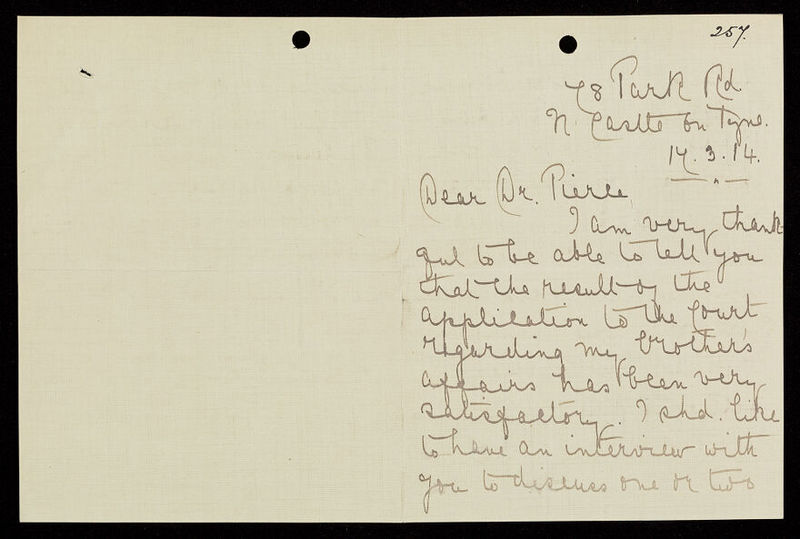 257.
78 Park Rd.
N. Castle on Tyne.
17.3.14.
Dear Dr. Pierce,
I am very thank-
ful to be able to tell you
that the result of the
application to the Court
regarding my brother's
affairs has been very
satisfactory. I shd. like
to have an interview with
you to discuss one or two